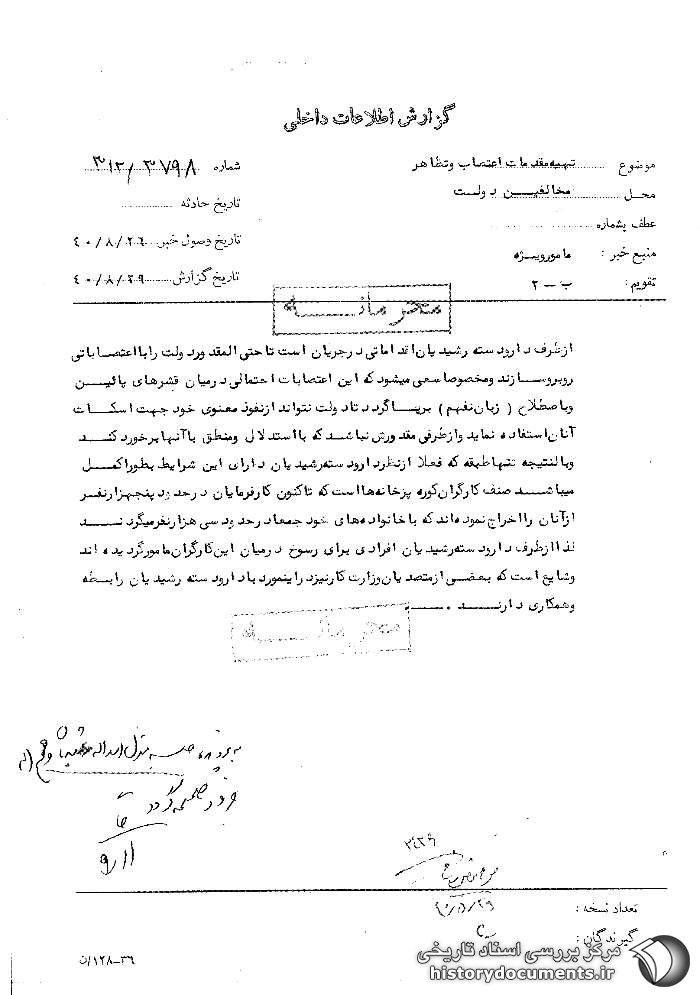 گزارش اطلاعات داخلی
موضوع تهیه مقدمات اعتصاب وتظاهر
محل مخالفین دولت
عطف بشماره
منبع خبر : ما مورویژه
تقویم : ب - ۲
شماره ۳۱۲/۳۷۹۸
تاریخ حادثه
تاریخ وصول خبر ۴۰/۸/۲۶
تاریخ گزارش ۴۰/۸/۲۹
محرمانه
ازطرف دارودسته رشیدیان اقداماتی درجریان است تاحتی المقدوردولت راباعتصاباتی
روبروسازند ومخصوصاسعی میشودکه این اعتصابات احتمالی درمیان قشرهای پائین
وباصطلاح ( زبان نفهم ) برپاگردد تادولت نتواند ازنفوذ معنوی خود جهت اسکات
آنان استفاده نماید وازطرفی مقدورش نباشد که بااستدلال ومنطق باآنها برخورد کند
وبالنتیجه تنهاطبقه که فعلا ازنظردارودسته رشیدیان دارای این شرایط بطوراکمل
میباشد صنف کارگران کوره پزخانه هااست که تاکنون کارفرمایان درحدود پنجهزارنفر
ازآنان رااخراج نموده اند که باخانواده های خود جمعادرحدود سی هزارنفرمیگردند
لذا ازطرف دارودسته رشیدیان افرادی برای رسوخ درمیان این کارگران مامورگردیده اند
وشایع است که بعضی ازمتصدیان وزارت کارنیزدراینموردبادارودسته رشیدیان رابطه
وهمکاری دارند .
محرمانه
تعداد نسخه :
گیرندگان :
۳۶-۱۲۸/ن
مرکز بررسی اسناد تاریخی
historydocuments.ir